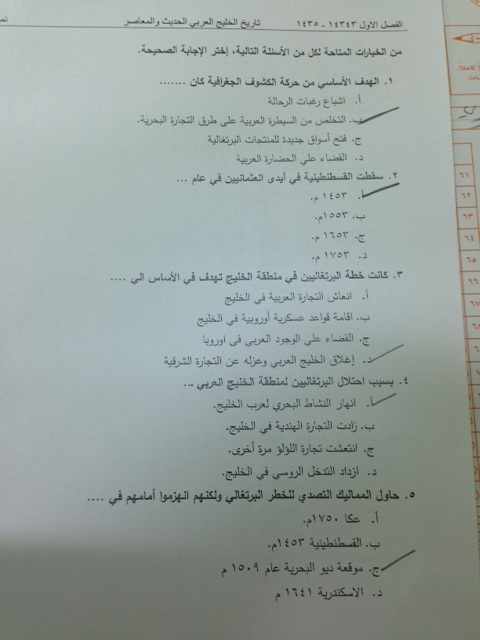 الفصل الاول ١٤٣٤٣ - ١٤٣٥
تاريخ الخليج العربي الحديث والمعاصر
من الخيارات المتاحة لكل من الأسئلة التالية، إختر الإجابة الصحيحة.
١. الهدف الأساسي من حركة الكشوف الجغرافية كان .......
أ. اشباع رغبات الرحالة
ب. التخلص من السيطرة العربية علي طرق التجارة البحرية.
ج. فتح أسواق جديدة للمنتجات البرتغالية
د. القضاء علي الحضارة العربية
٢. سقطت القسطنطينية في أيدى العثمانيين في عام ...
أ. ١٤٥٣ م.
ب. ١٥٥٣م.
ج. ١٦٥٣ م.
د. ١٧٥٣ م.
٣. كانت خطة البرتغاليين في منطقة الخليج تهدف في الأساس الي ....
أ. انعاش التجارة العربية في الخليج
ب. اقامة قواعد عسكرية أوروبية في الخليج
ج. القضاء علي الوجود العربي في اوروبا
د. إغلاق الخليج العربي وعزله عن التجارة الشرقية
٤. بسبب احتلال البرتغاليين لمنطقة الخليج العربي ...
أ. انهار النشاط البحري لعرب الخليج.
ب. زادت التجارة الهندية في الخليج.
ج. انتعشت تجارة اللؤلؤ مرة أخرى.
د. ازداد التدخل الروسي في الخليج.
٥. حاول المماليك التصدي للخطر البرتغالي ولكنهم انهزموا أمامهم في ....
أ. عكا ١٧٥٠ م.
ب. القسطنطينية ١٤٥٣ م.
ج. موقعة ديو البحرية عام ١٥٠٩ م
د. الاسكندرية ١٦٤١ م
٦١
٦٢
٦٣
٦٤
٦٥
٦٦